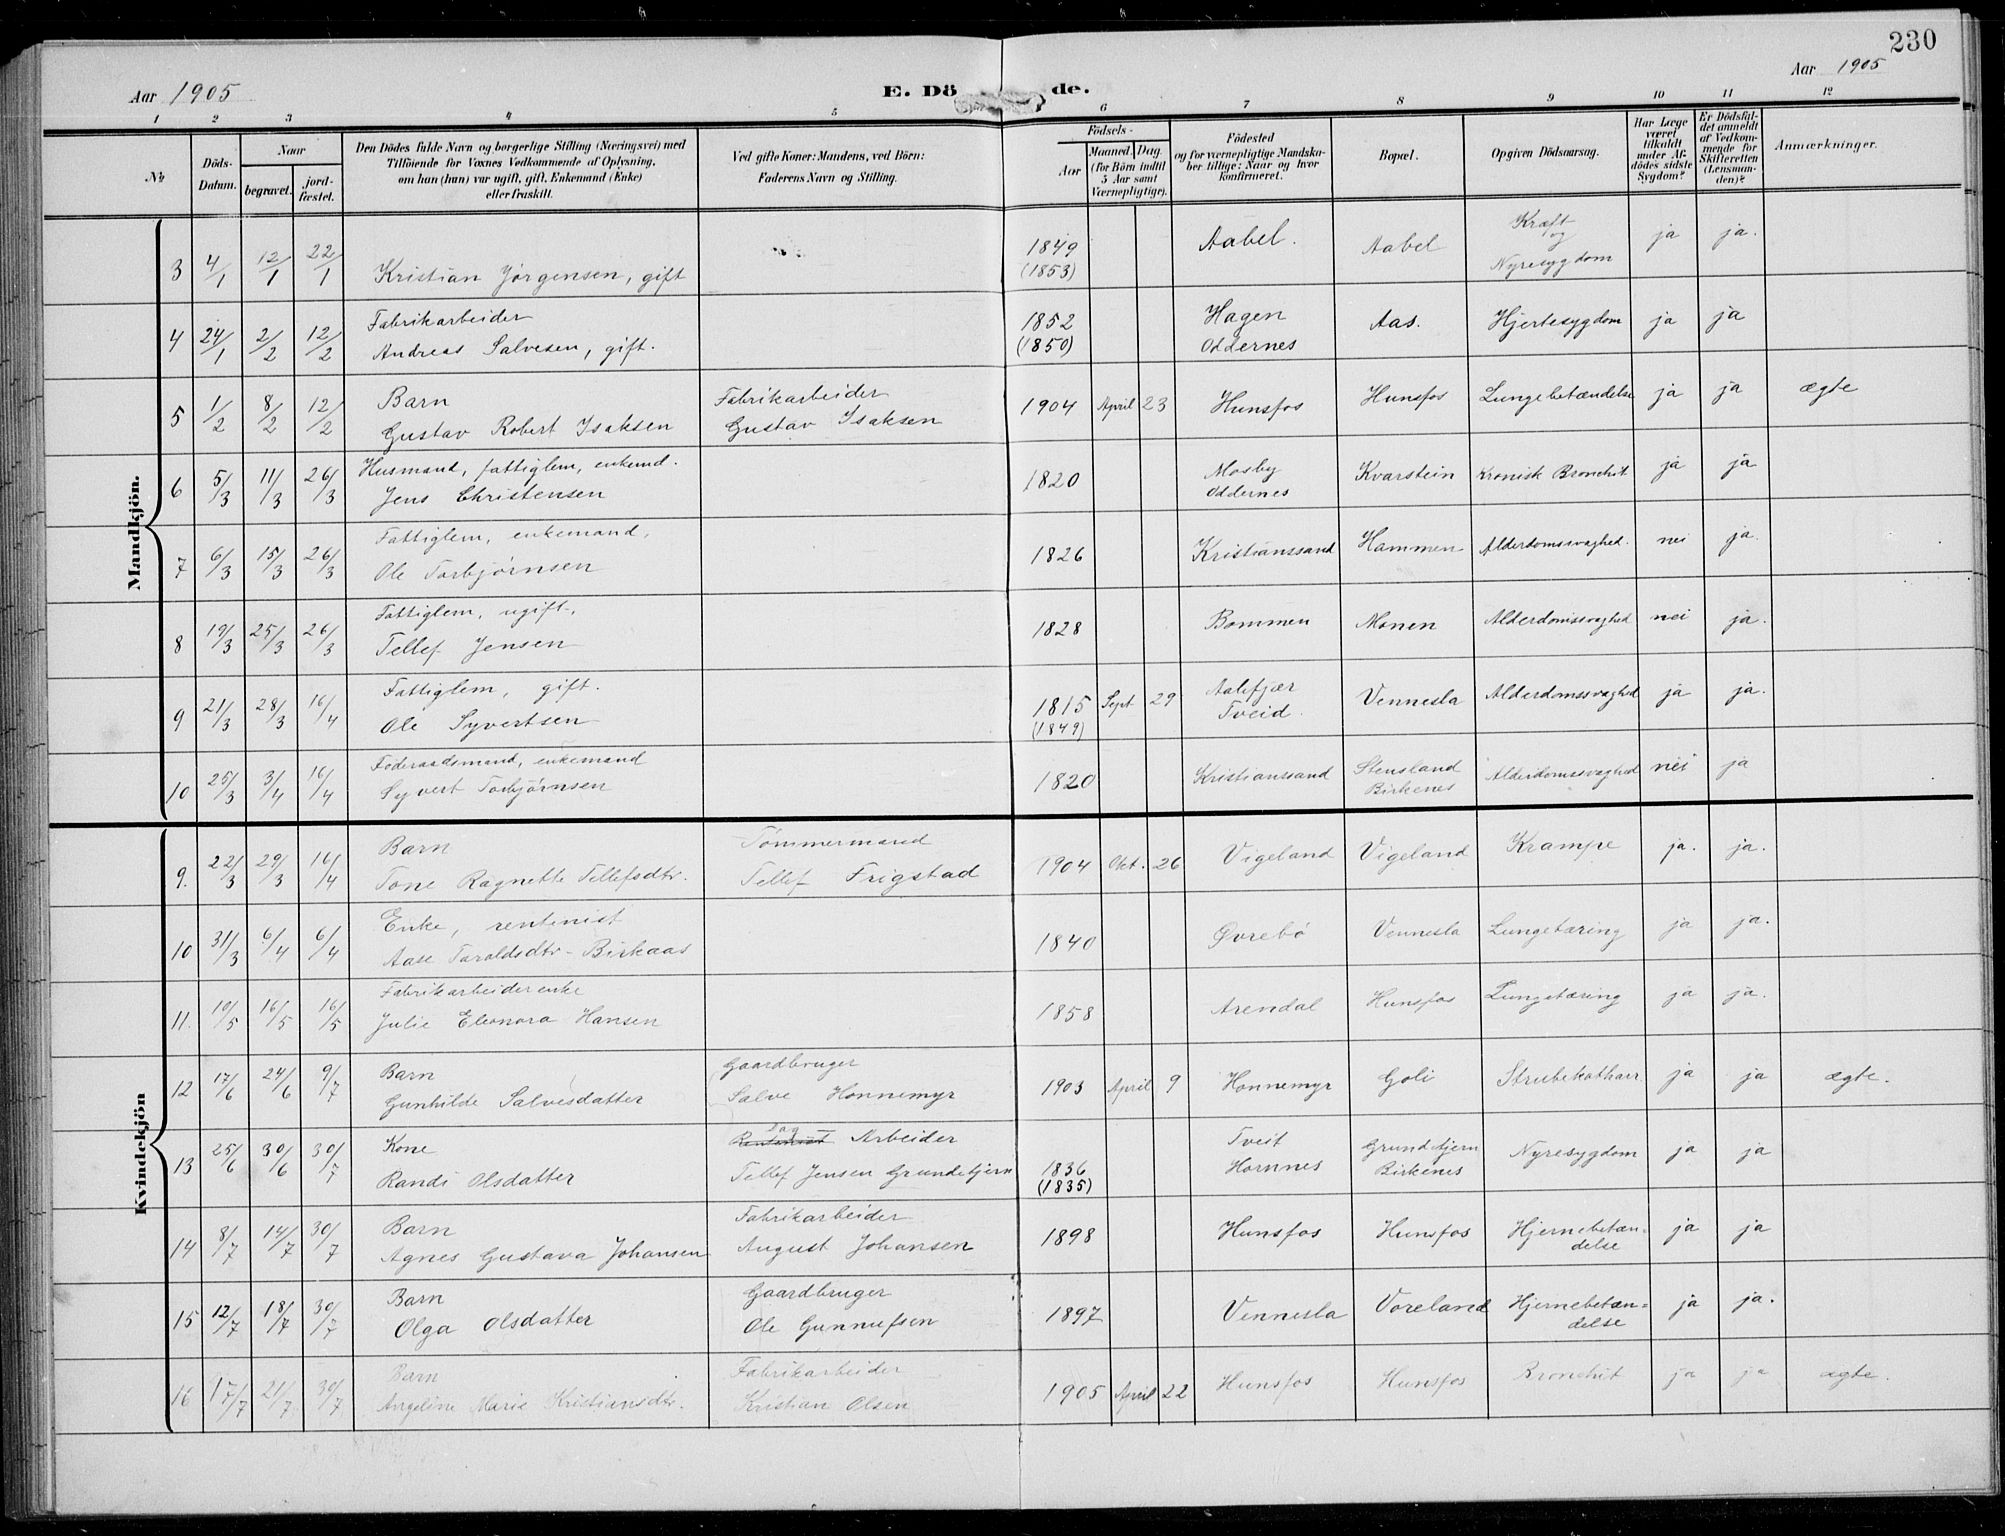 230
Aar 1905
E. Dö de.
Aar 1905
1 2 3 4 5 6 7 8 9 10 11 12
№
Döds-Datum.
Naar
begravet.
jord-fæstet.
Den Dödes fulde Navn og borgerlige Stilling (Næringsvei) med
Tilföiende for Voxnes Vedkommende af Oplysning,
om han (hun) var ugift, gift, Enkemand (Enke)
eller fraskilt.
Ved gifte Koner: Mandens, ved Börn:
Faderens Navn og Stilling.
Födsels-
Aar
Maaned. Dag
(for Börn indtil
5 Aar samt
Værnepligtige).
Födested
og for værnepligtige Mandska-
ber tillige: Naar og hvor
konfirmeret.
Bopæl.
Opgiven Dödsaarsag.
Har Læge
været
tilkaldt
under Af-
dödes sidste
Sygdom?
Er Dödsfal-
det anmeldt
af Vedkom-
mende for
Skifteretten
(Lensman-
den)?
Anmærkninger.
Mandkjön.
3 4/1 12/1 22/1 Kristian Jørgensen, gift 1849 (1853) Aabel. Aabel Kræft og Nyresygdom ja ja.
4 24/1 2/2 12/2 Fabrikarbeider
Andreas Salvesen, gift. 1852 (1850) Hagen Oddernes Aas. Hjertesygdom ja ja
5 1/2 8/2 12/2 Barn
Gustav Robert Isaksen Fabrikarbeider Gustav Isaksen 1904 April 23 Hunsfos Hunsfos Lungebetændelse ja ja ægte
6 5/3 11/3 26/3 Husmand, fattiglem, enkemd.
Jens Christensen 1820 Mosby Oddernes Kvarstein Kronisk Bronchit ja ja
7 6/3 15/3 26/3 Fattiglem, enkemand,
Ole Torbjørnsen 1826 Kristianssand Hammen Alderdomssvaghed. nei ja.
8 19/3 25/3 26/3 Fattiglem, ugift,
Tellef Jensen 1828 Bommen Monen Alderdomssvaghed nei ja.
9 21/3 28/3 16/4 Fattiglem, gift.
Ole Syvertsen 1815 (1849) Sept 29 Aalefjær Tveid. Vennesla Alderdomssvaghed ja ja.
10 25/3 3/4 16/4 Føderaadsmand, enkemand
Syvert Torbjørnsen 1820 Kristianssand Stensland Birkenes Alderdomssvaghed nei ja
Kvindekjön
9. 22/3 29/3 16/4 Barn
Tone Ragnette Tellefsdtr. Tømmermand Tellef Frigstad 1904 Okt. 26 Vigeland Vigeland Krampe ja. ja.
10 31/3 6/4 6/4 Enke, rentenist
Aase Taroldsdtr - Birkaas 1840 Øvrebö Vennesla Lungetæring ja ja.
11. 10/5 16/5 16/5 Fabrikarbeiderenke
Julie Eleonora Hansen 1858 Arendal Hunsfos Lungetæring ja ja.
12 17/6 24/6 9/7 Barn
Gunhilde Salvesdatter Gaardbruger Salve Honnemyr 1903 April 9 Honnemyr Goli Strubekatharr ja ja ægte.
13 25/6 30/6 30/7 Kone
Randi Olsdatter Dag Arbeider Tellef Jensen Grundetjern 1836 (1835) Tveit Hornnes Grundetjern Birkenes Nyresygdom ja ja
14 8/7 14/7 30/7 Barn
Agnes Gustava Johansen Fabrikarbeider August Johansen 1898 Hunsfos Hunsfos Hjernebetæn-delse ja ja
15 12/7 18/7 30/7 Barn
Olga Olsdatter Gaardbruger Ole Gunnufsen 1897 Vennesla Voreland Hjernebetæn=delse ja ja.
16 17/7 21/7 30/7 Barn
Angeline Marie Kristiansdtr. Fabrikarbeider Kristian Olsen 1905 April 22 Hunsfos Hunsfos Bronchit ja ja ægte.